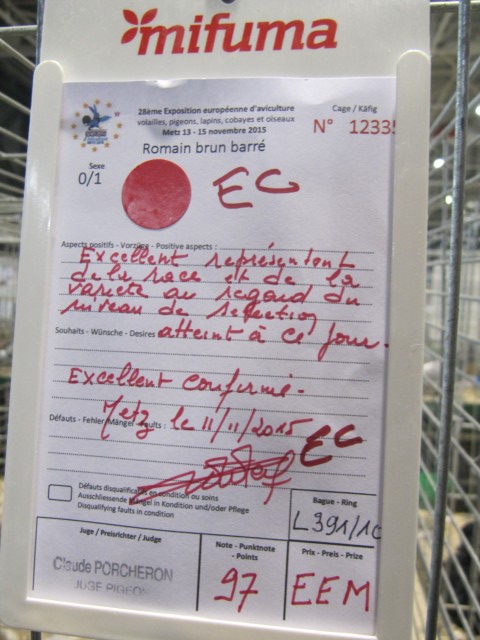 mifuma
28ème Exposition européenne d'aviculture
volailles, pigeons, lapins, cobayes et oiseaux
Metz 13 - 15 novembre 2015
Cage / Käfig
N° 1233
Romain brun barré
Sexe
0/1
EC
Aspects positifs - Vorzüge - Positive aspects :
Excellent représentant
de la race et de la
varieté au regard du
niveau de sélection
Souhaits - Wünsche - Desires atteint à ce jour.
Excellent confirmé.
Metz le 11/11/2015 EC
Défauts - Fehler/Mängel - Faults :
Défauts disqualificatifs en condition ou soins
Ausschliessende Mängel in Kondition und/oder Pflege
Disqualifying faults in condition
Bague - Ring
L391/10
Juge / Preisrichter / Judge
Claude PORCHERON
JUGE PIGEON
Note - Punktnote
- Points
97
Prix - Preis - Prize
EEM